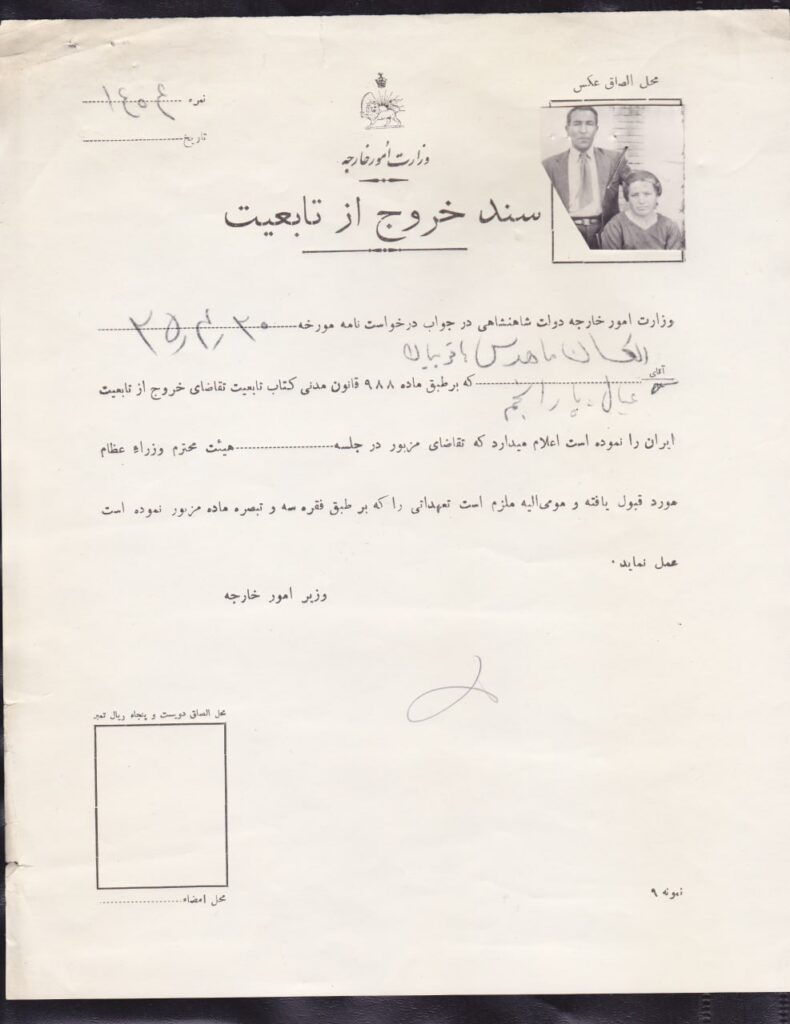 محل الصاق عکس
نمره
تاریخ
وزارت امور خارجه
سند خروج از تابعیت
وزارت امور خارجه دولت شاهنشاهی در جواب درخواست نامه مورخه ۲۰
آقای
که بر طبق ماده ۹۸۸ قانون مدنی کتاب تابعیت تقاضای خروج از تابعیت
ایران را نموده است اعلام میدارد که تقاضای مزبور در جلسه هیئت محترم وزراء عظام
مورد قبول یافته و مومی‌الیه ملزم است تعهداتی را که بر طبق فقره سه و تبصره ماده مزبور نموده است
عمل نماید.
وزیر امور خارجه
محل الصاق دویست و پنجاه ریال تمبر
محل امضاء
نمونه ۹